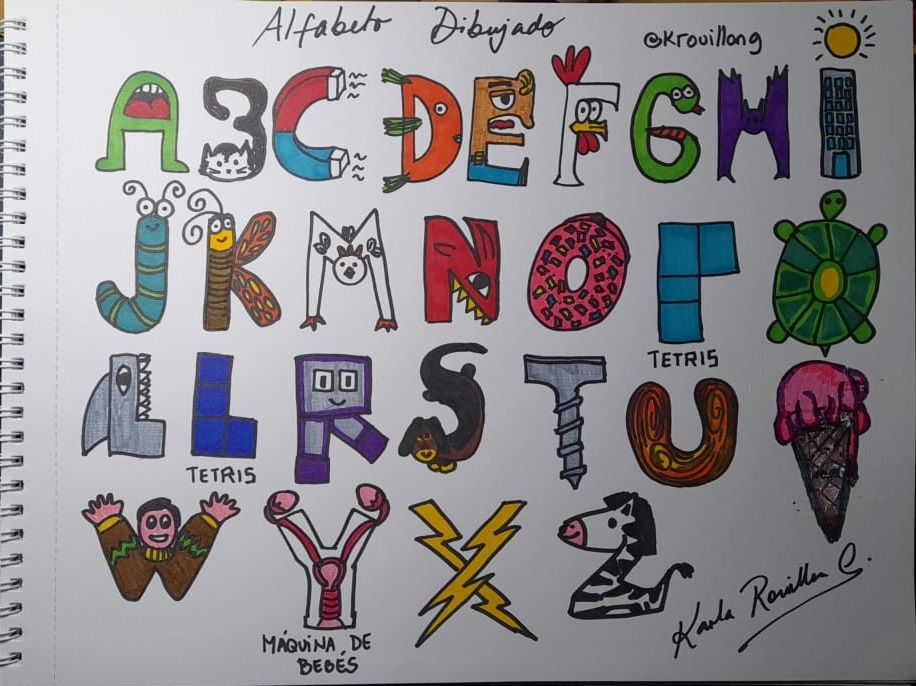 Alfabeto Dibujado
@Krovillong
A B C D E F G H I
J K M N O P Q
TETRIS
L L R S T U V
TETRIS
W Y X Z
MÁQUINA DE
BEBÉS
Karla